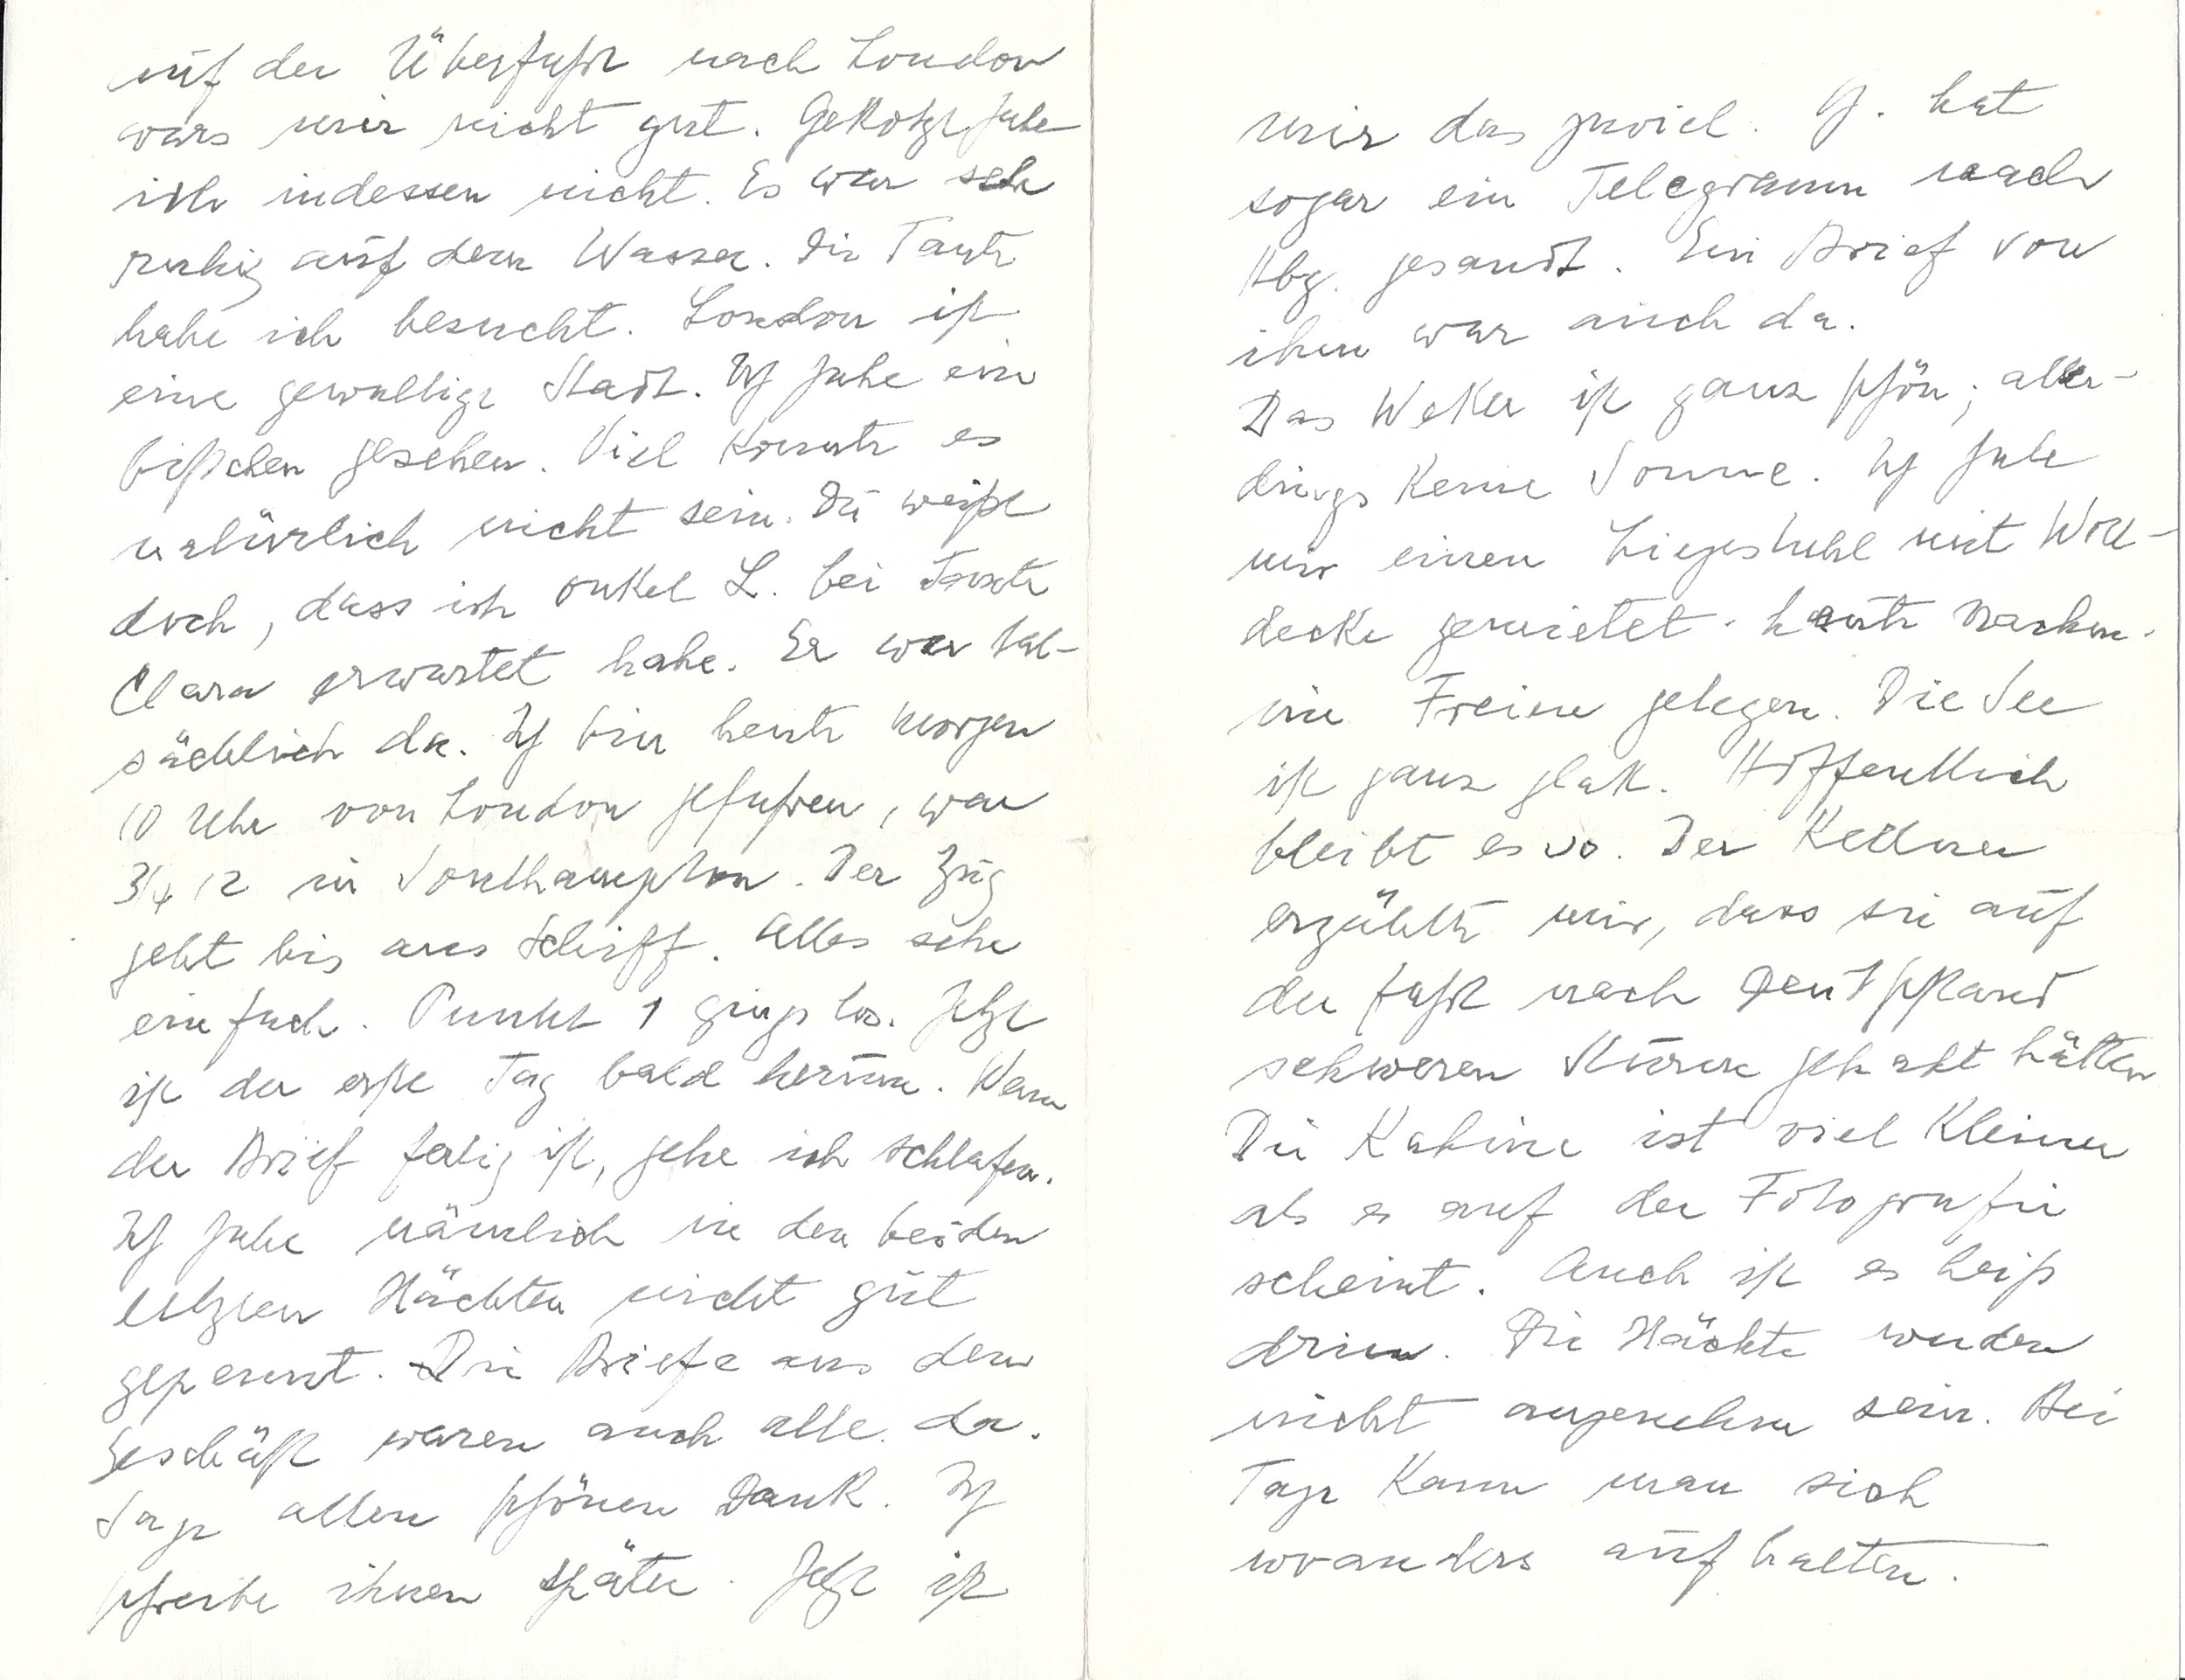 auf der Überfahrt nach London
wars mir nicht gut. Gekotzt habe
ich indessen nicht. Es war sehr
ruhig auf dem Wasser. Die Tante
habe ich besucht. London ist
eine gewaltige Stadt. Ich habe ein
bißchen gesehen. Viel konnte es
natürlich nicht sein. Du weißt
doch, dass ich Onkel L. bei Tante
Clara erwartet habe. Er war tat-
sächlich da. Ich bin heute morgen
10 Uhr von London gefahren, war
3/4 12 in Southampton. Der Zug
geht bis ans Schiff. Alles sehr
einfach. Punkt 1 gings los. Jetzt
ist der erste Tag bald herum. Wenn
der Brief fertig ist, gehe ich schlafen.
Ich habe nämlich in den beiden
letzten Nächten nicht gut
gepennt. Die Briefe aus dem
Geschäft waren auch alle da.
Sage allen schönen Dank. Ich
schreibe ihnen später. Jetzt ist
mir das zuviel. G. hat
sogar ein Telegramm nach
Hbg. gesandt. Ein Brief von
ihm war auch da.
Das Wetter ist ganz schön; aller-
dings keine Sonne. Ich habe
mir einen Liegestuhl mit Woll-
decke gemietet. heute Nachm.
im Freien gelegen. Die See
ist ganz glatt. Hoffentlich
bleibt es so. Der Kellner
erzählte mir, dass sie auf
der Fahrt nach Deutschland
schweren Sturm gehabt hätten
Die Kabine ist viel kleiner
als es auf der Fotografie
scheint. Auch ist es heiß
drin. Die Nächte werden
nicht angenehm sein. Bei
Tage kann man sich
woanders aufhalten.